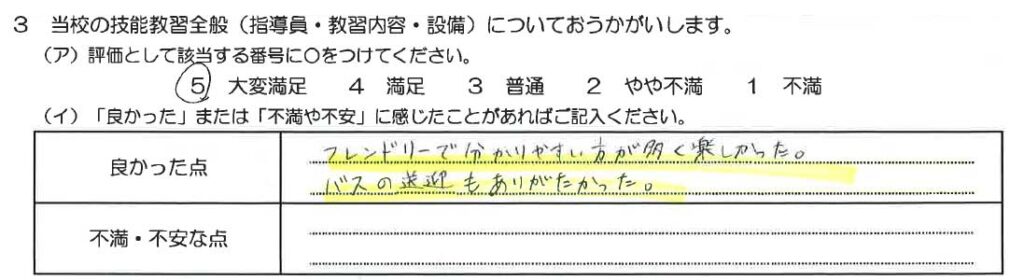 3 当校の技能教習全般（指導員・教習内容・設備）についておうかがいします。
（ア）評価として該当する番号に〇をつけてください。
5 大変満足 4 満足 3 普通 2 やや不満 1 不満
（イ）「良かった」または「不満や不安」に感じたことがあればご記入ください。
良かった点
フレンドリーで分かりやすい方が多く楽しかった。
バスの送迎もありがたかった。
不満・不安な点